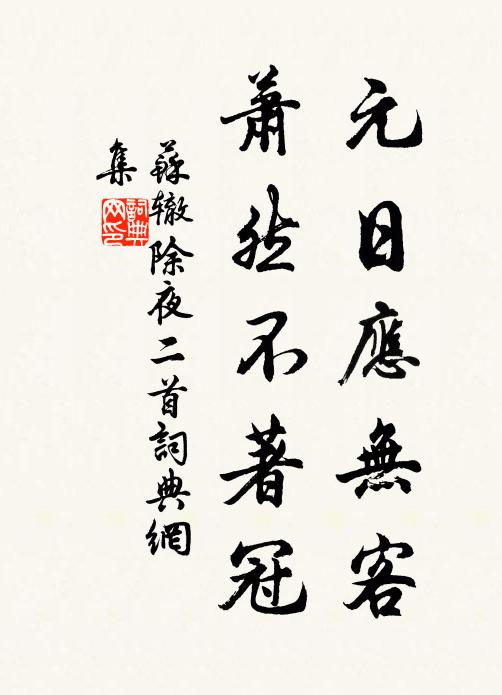 元日應無客
蕭然不著冠
蘇辙除夜二首詞典網
集
詞典
网印